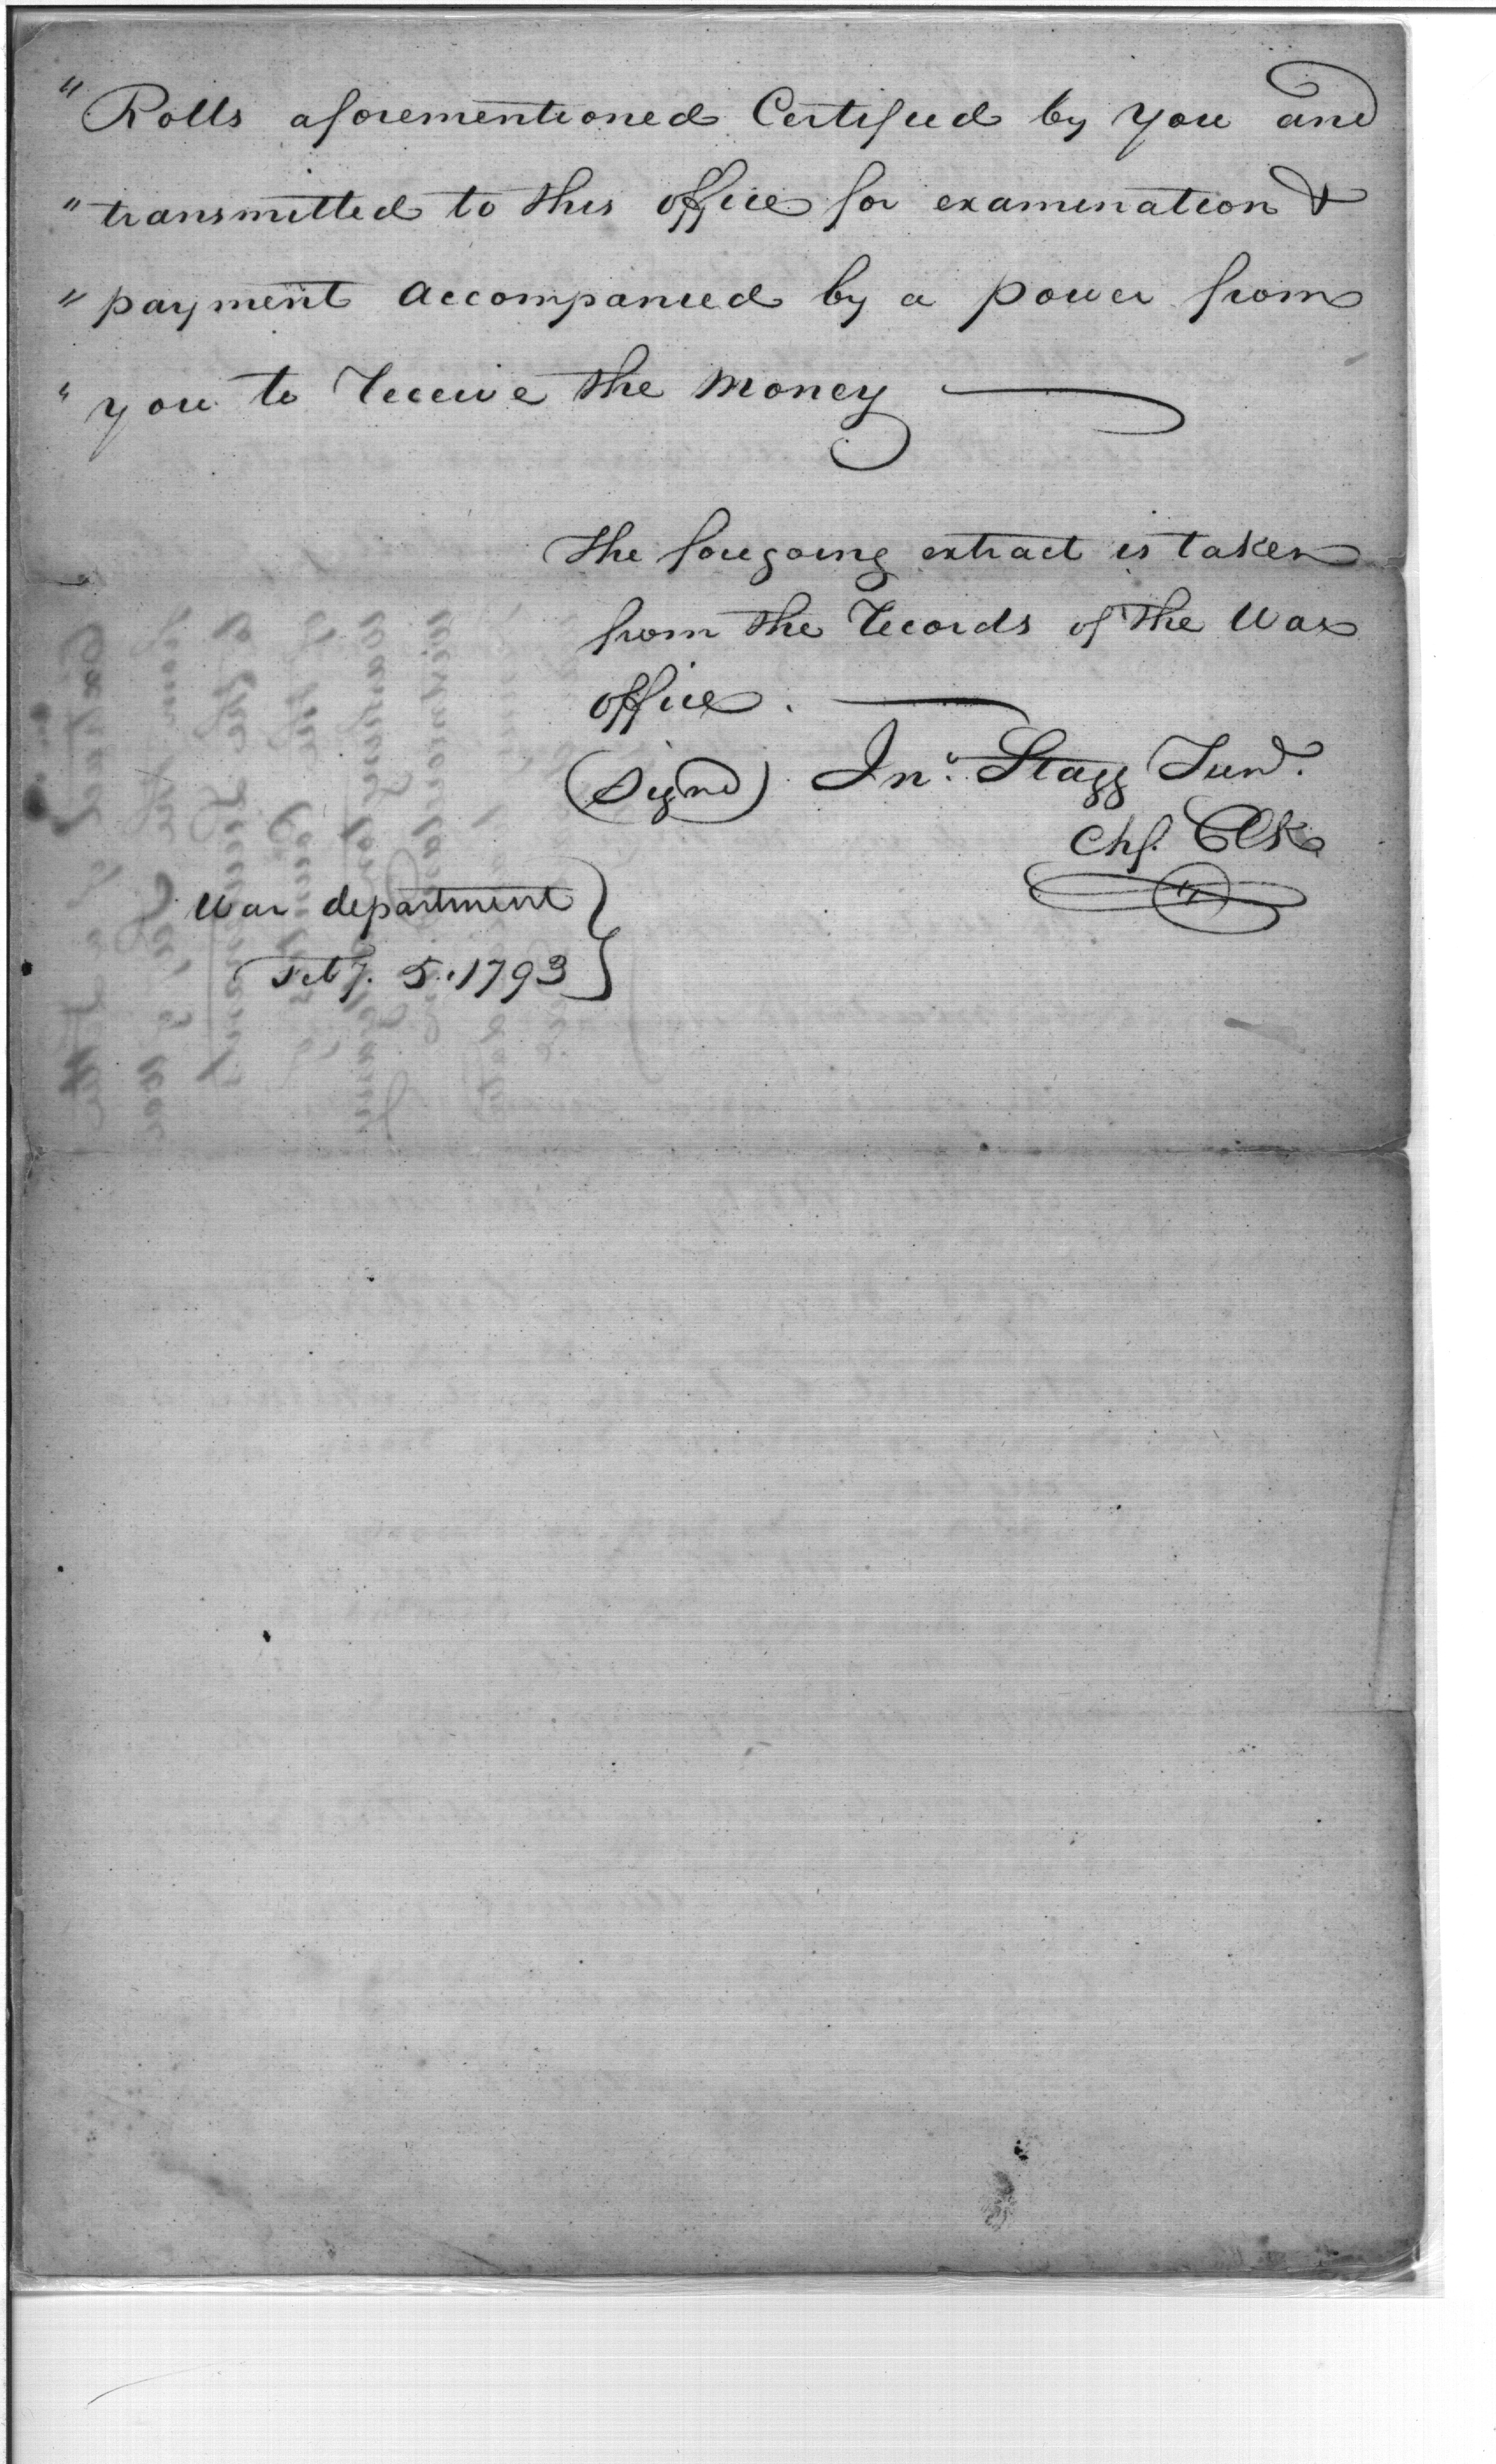 " Rolls aforementioned Certified by you and
" transmitted to this office for examination &
" payment accompanied by a power from
" you to receive the money
The foregoing extract is taken
from the records of the War
office.
(Signd) Jno. Stagg Junr.
Chf. Clk
War department
Feby. 5. 1793